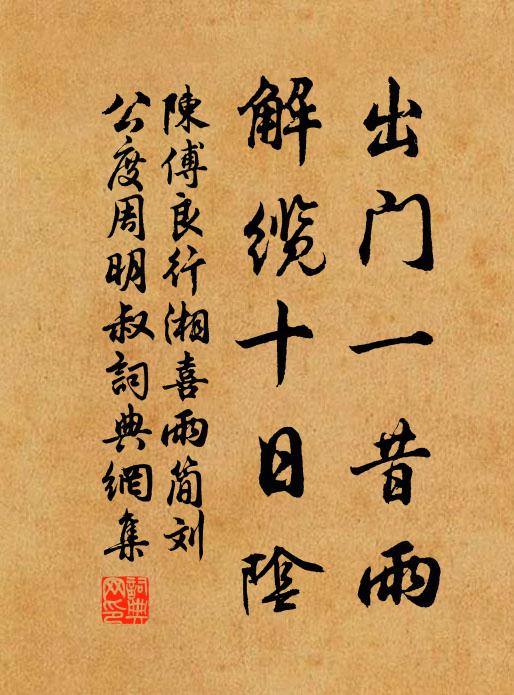 出门一昔雨
解缆十日陰
陳傅良行湘喜雨简刘
公度周明叔詞典網集
詞典網印